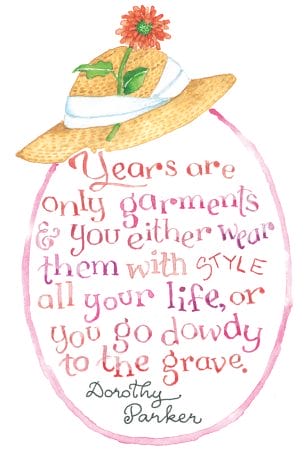 Years are
only garments
& you either wear
them with STYLE
all your life, or
you go dowdy
to the grave.
Dorothy
Parker